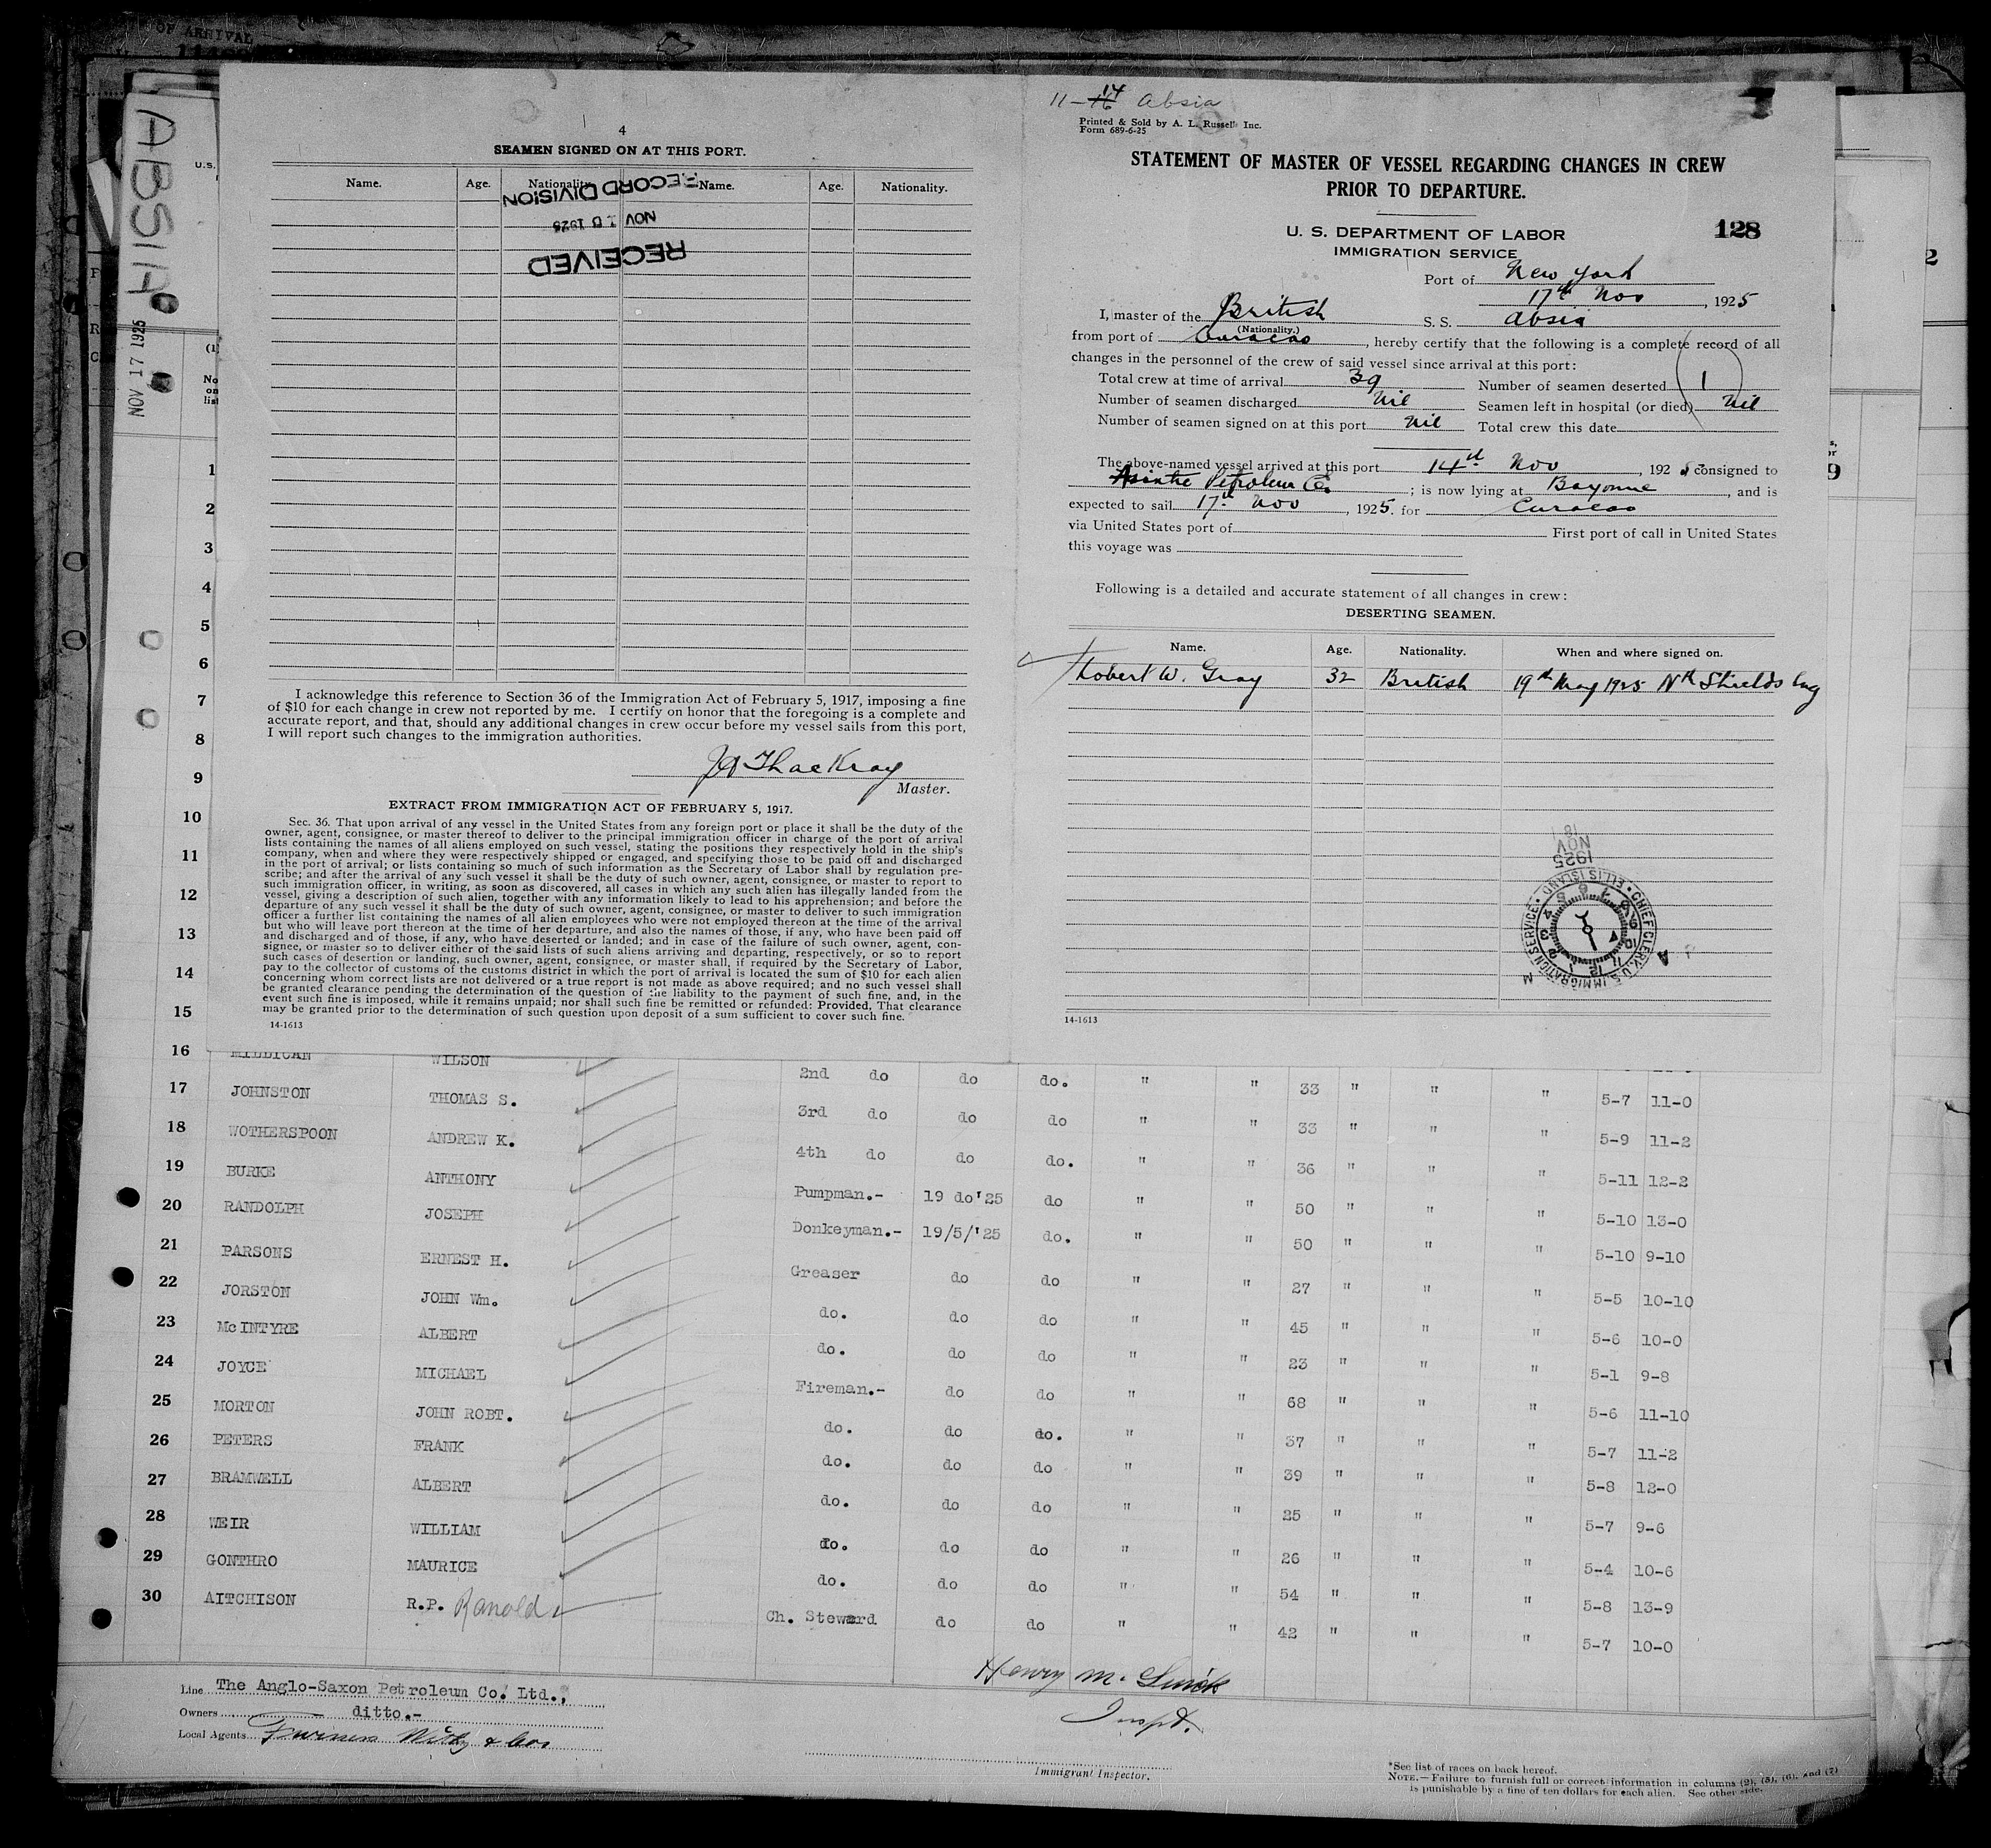 OF ARRIVAL
ABSIA
NOV 17 1925
U.S.
(1)
No
on
list
4
SEAMEN SIGNED ON AT THIS PORT.
Name. Age. Nationality. Name. Age. Nationality.
RECORD DIVISION
NOV 1925
RECEIVED
I acknowledge this reference to Section 36 of the Immigration Act of February 5, 1917, imposing a fine
of $10 for each change in crew not reported by me. I certify on honor that the foregoing is a complete and
accurate report, and that, should any additional changes in crew occur before my vessel sails from this port,
I will report such changes to the immigration authorities.
Thackray
Master.
EXTRACT FROM IMMIGRATION ACT OF FEBRUARY 5, 1917.
Sec. 36. That upon arrival of any vessel in the United States from any foreign port or place it shall be the duty of the
owner, agent, consignee, or master thereof to deliver to the principal immigration officer in charge of the port of arrival
lists containing the names of all aliens employed on such vessel, stating the positions they respectively hold in the ship's
company, when and where they were respectively shipped or engaged, and specifying those to be paid off and discharged
in the port of arrival; or lists containing so much of such information as the Secretary of Labor shall by regulation pre-
scribe; and after the arrival of any such vessel it shall be the duty of such owner, agent, consignee, or master to report to
such immigration officer, in writing, as soon as discovered, all cases in which any such alien has illegally landed from the
vessel, giving a description of such alien, together with any information likely to lead to his apprehension; and before the
departure of any such vessel it shall be the duty of such owner, agent, consignee, or master to deliver to such immigration
officer a further list containing the names of all alien employees who were not employed thereon at the time of the arrival
but who will leave port thereon at the time of her departure, and also the names of those, if any, who have been paid off
and discharged and of those, if any, who have deserted or landed; and in case of the failure of such owner, agent, con-
signee, or master so to deliver either of the said lists of such aliens arriving and departing, respectively, or so to report
such cases of desertion or landing, such owner, agent, consignee, or master shall, if required by the Secretary of Labor,
pay to the collector of customs of the customs district in which the port of arrival is located the sum of $10 for each alien
concerning whom correct lists are not delivered or a true report is not made as above required; and no such vessel shall
be granted clearance pending the determination of the question of the liability to the payment of such fine, and, in the
event such fine is imposed, while it remains unpaid; nor shall such fine be remitted or refunded: Provided, That clearance
may be granted prior to the determination of such question upon deposit of a sum sufficient to cover such fine.
14-1613
11-14 Absia
Printed & Sold by A. L. Russell Inc.
Form 689-6-25
STATEMENT OF MASTER OF VESSEL REGARDING CHANGES IN CREW
PRIOR TO DEPARTURE.
128
U. S. DEPARTMENT OF LABOR
IMMIGRATION SERVICE
Port of New York
17th Nov, 1925
I, master of the British S. S. Absia
(Nationality.)
from port of Curacao, hereby certify that the following is a complete record of all
changes in the personnel of the crew of said vessel since arrival at this port:
Total crew at time of arrival 39 Number of seamen deserted 1
Number of seamen discharged Nil Seamen left in hospital (or died) Nil
Number of seamen signed on at this port Nil Total crew this date
The above-named vessel arrived at this port 14th Nov, 1925 consigned to
Asiatic Petroleum Co. ; is now lying at Bayonne, and is
expected to sail 17th Nov, 1925. for Curacao
via United States port of First port of call in United States
this voyage was
Following is a detailed and accurate statement of all changes in crew:
DESERTING SEAMEN.
Name. Age. Nationality. When and where signed on.
Robert W. Gray 32 British 19th May 1925 Nth Shields Eng
1925
NOV
18
CHIEF CLERK, U.S. IMMIGRATION SERVICE • ELLIS ISLAND •
14-1613
1
2
3
4
5
6
7
8
9
10
11
12
13
14
15
16 MILLICAN WILSON 2nd do do do. " " 33 " " " 5-7 11-0
17 JOHNSTON THOMAS S. 3rd do do do " " 33 " " " 5-9 11-2
18 WOTHERSPOON ANDREW K. 4th do do do. " " 36 " " " 5-11 12-2
19 BURKE ANTHONY Pumpman.- 19 do '25 do " " 50 " " " 5-10 13-0
20 RANDOLPH JOSEPH Donkeyman.- 19/5/'25 do. " " 50 " " " 5-10 9-10
21 PARSONS ERNEST H. Greaser do do " " 27 " " " 5-5 10-10
22 JORSTON JOHN Wm. do. do do " " 45 " " " 5-6 10-0
23 McINTYRE ALBERT do. do do " " 23 " " " 5-1 9-8
24 JOYCE MICHAEL Fireman.- do do " " 68 " " " 5-6 11-10
25 MORTON JOHN ROBT. do. do do. " " 37 " " " 5-7 11-2
26 PETERS FRANK do. do do " " 39 " " " 5-8 12-0
27 BRAMWELL ALBERT do. do do " " 25 " " " 5-7 9-6
28 WEIR WILLIAM do. do do " " 26 " " " 5-4 10-6
29 GONTHRO MAURICE do. do do " " 54 " " " 5-8 13-9
30 AITCHISON R.P. Ranald Ch. Steward do do " " 42 " " " 5-7 10-0
Line The Anglo-Saxon Petroleum Co. Ltd.,
Owners ditto.-
Local Agents Furness Withy & Co
Henry M.
Inspt.
Immigrant Inspector.
*See list of races on back hereof.
NOTE.—Failure to furnish full or correct information in columns (2), (5), (6), and (7)
is punishable by a fine of ten dollars for each alien. See other side.